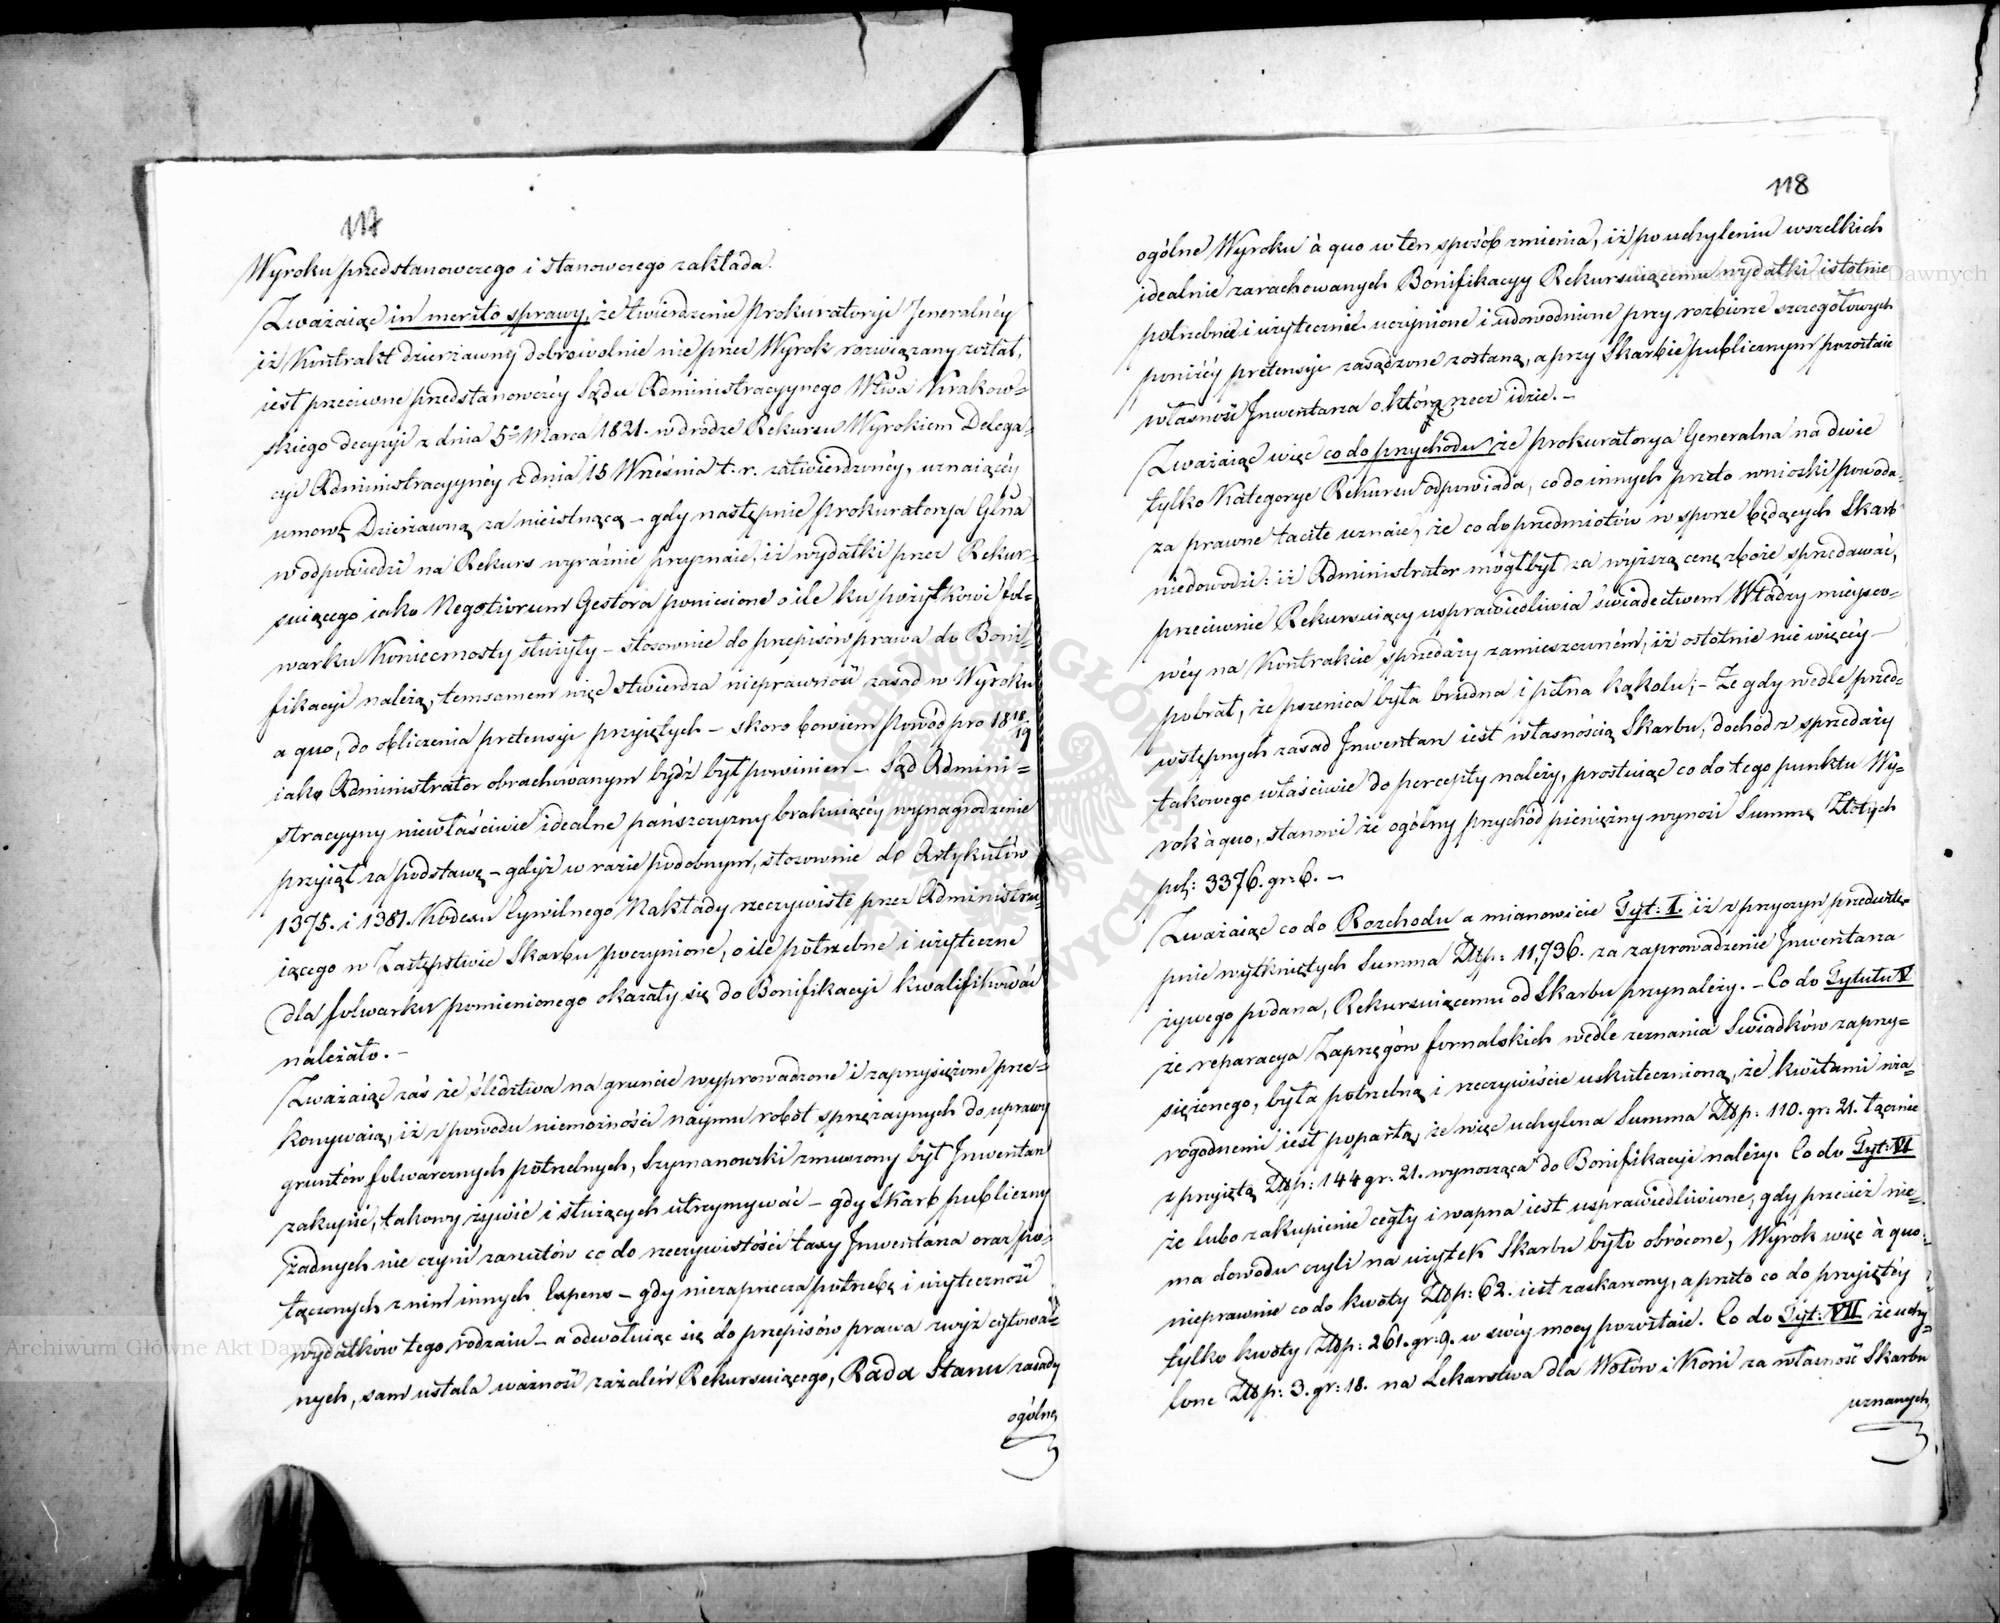 117
Wyroku przedstanowczego i stanowczego zakłada.
Zważaiąc in merito sprawy, że twierdzenie Prokuratoryi Jeneralnéy
iż Kontrakt dzierżawny dobrowolnie nie przez Wyrok rozwiązany został,
iest przeciwne przedstanowczéy Sądu Administracyynego Wtwa Krakow=
skiego decyzyi z dnia 5º Marca 1821. w drodze Rekursu Wyrokiem Delega=
cyi Administracyynéy z dnia 15 Września t. r. zatwierdzonéy, uznaiącéy
umowę Dzierżawną za nieistnącą – gdy następnie Prokuratorya Glna
w odpowiedzi na Rekurs wyraźnie przyznaie, iż wydatki przez Rekur=
suiącego iako Negotiorum Gestora poniesione o ile ku pożytkowi fol=
warku Koniecmosty służyły – stosownie do przepisów prawa do Boni=
fikacyi należą, temsamem więc stwierdza nieprawność zasad w Wyroku
a quo, do obliczenia pretensyi przyiętych – skoro bowiem Powód pro 18 18/19
iako Administrator obrachowanym bydź był powinien – Sąd Admini=
stracyyny niewłaściwie idealne pańszczyzny brakuiącéy wynagrodzenie
przyiął za podstawę – gdyż w razie podobnym, stosownie do Artykułów
1375. i 1381. Kodexu Cywilnego Nakłady rzeczywiste przez Administru=
iącego w Zastępstwie Skarbu poczynione, o ile potrzebne i użyteczne
dla folwarku pomienionego okazały się do Bonifikacyi kwalifikować
należało. –
Zważaiąc zaś że śledztwa na gruncie wyprowadzone i zaprzysiężone prze=
konywaią, iż z powodu niemożności naymu robót sprzężaynych do uprawy
gruntów folwarcznych potrzebnych, Szymanowski zmuszony był Inwentarz
zakupić, takowy żywić i służących utrzymywać – gdy Skarb publiczny
żadnych nie czyni zarzutów co do rzeczywistości taxy Inwentarza oraz po=
łączonych z nim innych Expens – gdy niezaprzecza potrzebę i użyteczność
wydatków tego rodzaiu – a odwołuiąc się do przepisów prawa zwyż cytowa=
nych, sam ustala ważność zażaleń Rekursuiącego, Rada Stanu zasady
ogólne
118
ogólne Wyroku à quo w ten sposób zmienia, iż po uchyleniu wszelkich
idealnie zarachowanych Bonifikacyy Rekursuiącemu wydatki istotnie
potrzebnie i użytecznie uczynione i udowodnione przy rozbiorze szczegółowych
poniżéy pretensyi zasądzone zostaną, a przy Skarbie publicznym pozostaie
własność Inwentarza o którą rzecz idzie. –
Zważaiąc więc co do przychodu, że Prokuratorya Generalna na dwie
tylko Kategorye Rekursu odpowiada, co do innych przeto wnioski powoda
za prawne tacite uznaie, że co do przedmiotów w sporze będących Skarb
niedowodzi: iż Administrator mógłbył za wyższą cenę zboże sprzedawać,
przeciwnie Rekursuiący usprawiedliwia świadectwem Władzy mieysco=
wéy na Kontrakcie sprzedaży zamieszczoném, iż istotnie nie więcéy –
pobrał, że pszenica była brudna i pełna kąkolu; – Że gdy wedle przed=
wstępnych zasad Inwentarz iest własnością Skarbu, dochód z sprzedaży
takowego właściwie do percepty należy, prostuiąc co do tego punktu Wy=
rok à quo, stanowi że ogólny przychód pieniężny wynosi Summę Złotych
pol: 3376. gr: 6. –
Zważaiąc co do Rozchodu a mianowicie Tyt: I. iż z przyczyn przedwstę=
pnie wytkniętych Summa Złtp: 11,736. za zaprowadzenie Inwentarza
żywego podana, Rekursuiącemu od Skarbu przynależy. – Co do Tytułu V
że reparacya Zaprzęgów fornalskich wedle zeznania Świadków zaprzy=
siężonego, była potrzebną i rzeczywiście uskutecznioną, że kwitami wia=
rogodnemi iest popartą, że więc uchylona Summa Złtp: 110. gr: 21. łącznie
z przyiętą Złtp: 144 gr: 21. wynosząca do Bonifikacyi należy. Co do Tyt: VI
że lubo zakupienie cegły i wapna iest usprawiedliwione, gdy przecież nie=
ma dowodu czyli na użytek Skarbu było obrócone, Wyrok więc à quo
nieprawnie co do kwoty Złtp: 62. iest zaskarżony, a przeto co do przyiętéy
tylko kwoty Złtp: 261. gr: 9. w swéy mocy pozostaie. Co do Tyt: VII że uchy=
lone Złtp: 3. gr: 18. na Lekarstwa dla Wołów i Koni za własność Skarbu
uznanych